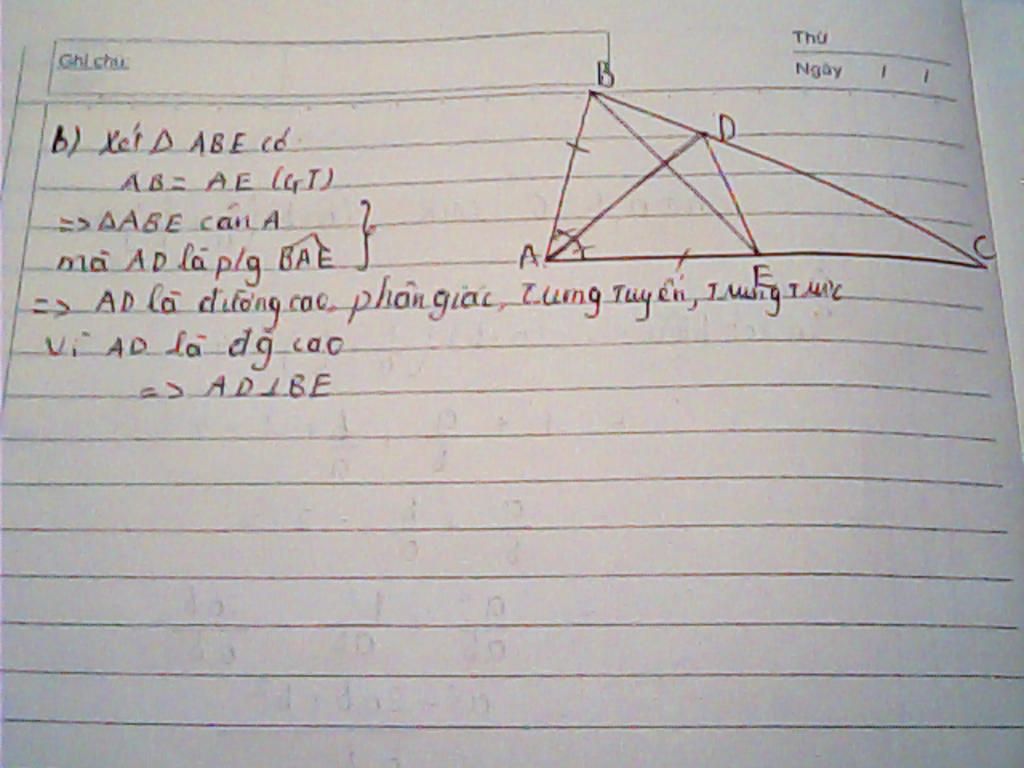 Ghi chú:
Thứ
Ngày / /
b) Xét Δ ABE có
AB = AE (GT)
=> ΔABE cân A
mà AD là p/g BAE
=> AD là đường cao, phân giác, trung tuyến, trung trực
Vì AD là đg cao
=> AD ⊥ BE
B
D
A
E
C